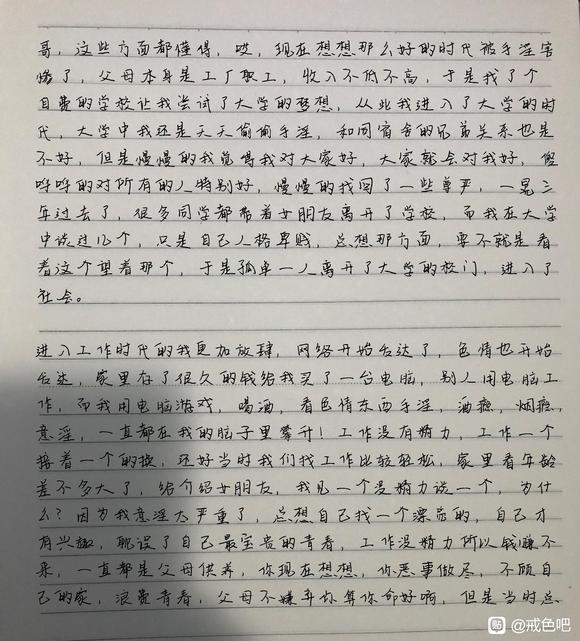 哥，这些方面都懂得，哎，现在想想那么好的时代被手淫害
惨了，父母本身是工厂职工，收入不低不高，于是找了个
自费的学校让我尝试了大学的梦想，从此我进入了大学的时
代，大学中我还是天天偷偷手淫，和同宿舍的兄弟关系也是
不好，但是慢慢的我觉得我对大家好，大家就会对我好，傻
呼呼的对所有的人特别好，慢慢的找回了一些尊严，一晃三
年过去了，很多同学都带着女朋友离开了学校，而我在大学
中谈过几个，只是自己人格卑贱，总想那方面，要不就是看
着这个望着那个，于是孤单一人离开了大学的校门，进入了
社会。
进入工作时代的我更加放肆，网络开始发达了，色情也开始
发达，家里存了很久的钱给我买了一台电脑，别人用电脑工
作，而我用电脑游戏，喝酒，看色情东西手淫，酒瘾，烟瘾，
意淫，一直都在我的脑子里攀升！工作没有精力，工作一个
接着一个的换，还好当时我们找工作比较轻松，家里看年龄
差不多大了，给介绍女朋友，我见一个没精力谈一个，为什
么？因为我意淫太严重了，总想自己找一个漂亮的，自己才
有兴趣，耽误了自己最宝贵的青春，工作没精力所以钱赚不
来，一直都是父母供养，你现在想想，你恶事做尽，不顾自
己的家，浪费青春，父母不嫌弃你算你命好啊，但是当时总
贴 @戒色吧